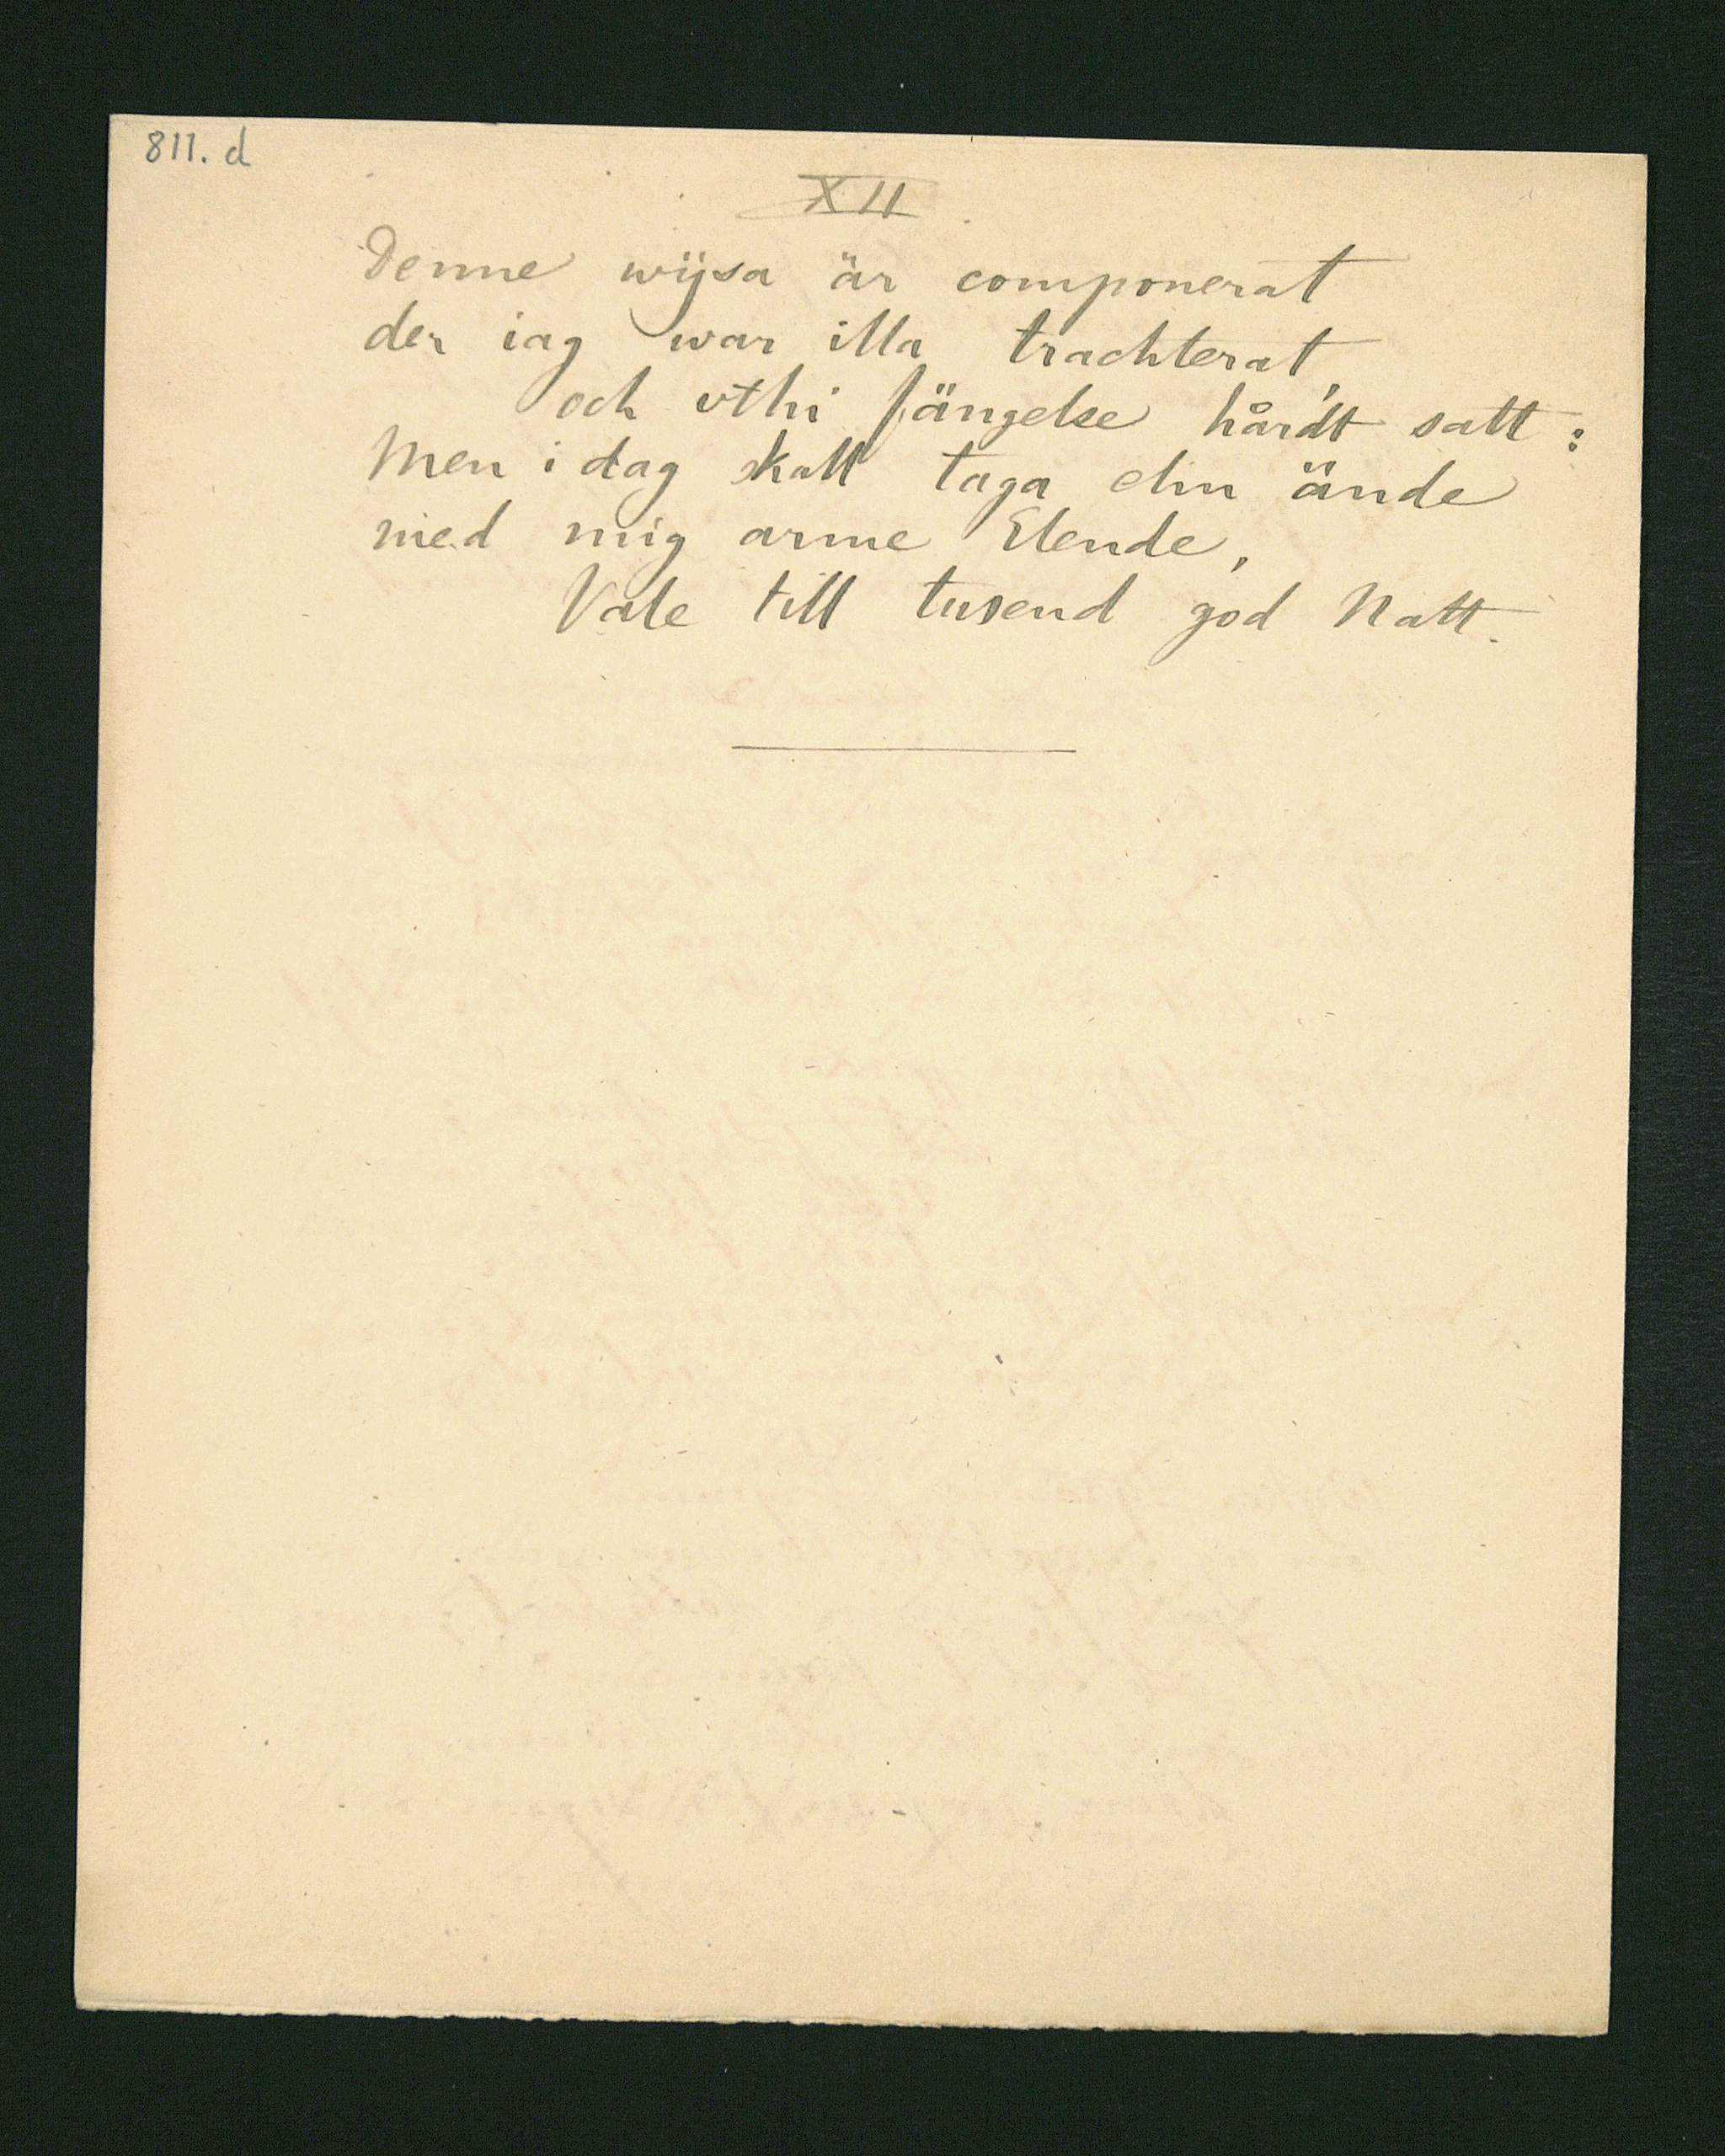 811. d
XII
Denne wijsa är componerat
der iag war illa trachterat,
och vthi fängelse hårdt satt:
Men i dag skall taga ehn ände
med mig arme Elende,
Vale till tusend god Natt.